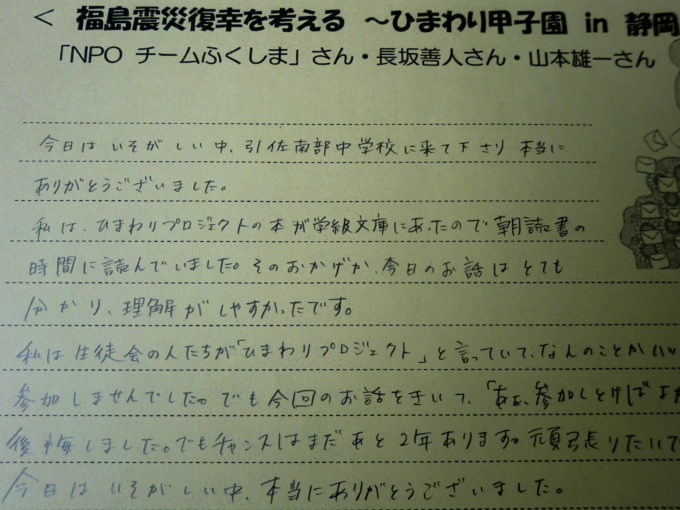 < 福島震災復幸を考える ～ひまわり甲子園 in 静岡
「NPO チームふくしま」さん・長坂善人さん・山本雄一さん
今日は いそがしい中、引佐南部中学校に来て下さり 本当に
ありがとうございました。
私は、ひまわりプロジェクトの本が学級文庫にあったので朝読書の
時間に読んでいました。そのおかげか、今日のお話はとても
分かり、理解がしやすかったです。
私は生徒会の人たちが「ひまわりプロジェクト」と言っていて、なんのことか
参加しませんでした。でも今回のお話をきいて、「あぁ、参加しとけばよ
後悔しました。でもチャンスはまだあと2年あります。頑張りたいで
今日は いそがしい中、本当にありがとうございました。